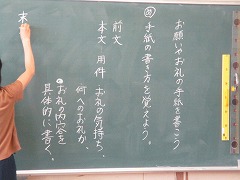 お願いやお礼の手紙を書こう
め 手紙の書き方を覚えよう。
前文
本文 用件 お礼の気持ち、
何へのお礼か、
◎お礼の内容を
具体的に書く。
末